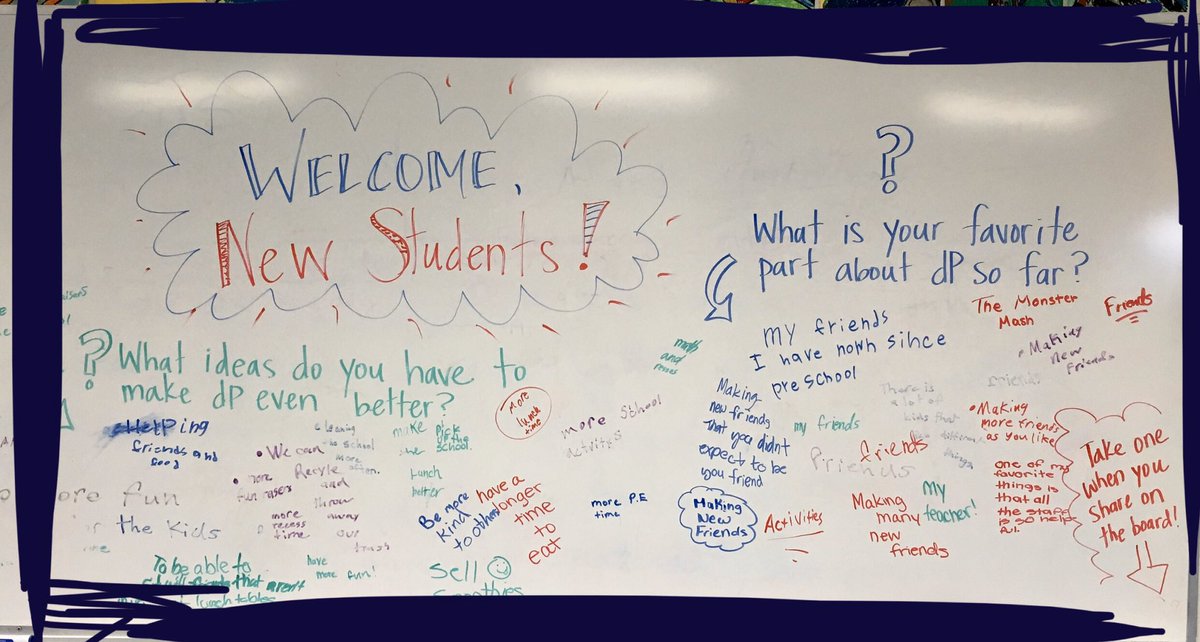 WELCOME,
New Students!
?
What is your favorite
part about dP so far?
The Monster
Mash
Friends
my friends
I have nown since
preschool
• Making
new
Friends
math
and
recess
? What ideas do you have to
make dP even better?
More
lunch
time
Making
new friends
that you didnt
expect to be
you friend
my friends
There is
a lot of
kids that
different
things
friends
• Making
more friends
as you like
HelPing
friends and
food
• We can
Recycle
and
throw
away
our
trash
cleaning
school
more
often.
make pick
up the
school.
Lunch
better
more School
activitys
friends
Friends
Take one
when you
share on
the board!
• more
fun rasers
more
recess
time
Be more
kind
to others
have a
longer
time
to
eat
more P.E
time
Making
New
Friends
Activities
Making
many
new
friends
my
teacher!
one of my
favorite
things is
that all
the staff
is so help
ful.
more fun
the Kids
To be able to
that arent
lunch tables
have
more fun!
sell